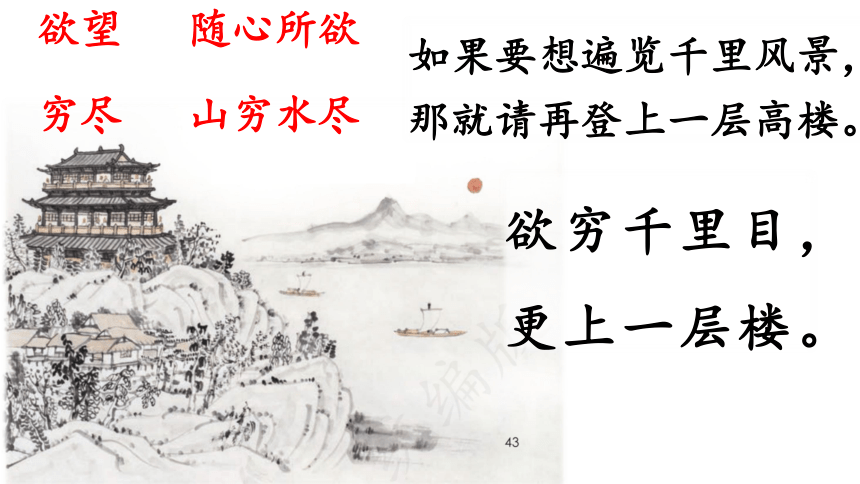 欲望 随心所欲
穷尽 山穷水尽
如果要想遍览千里风景，
那就请再登上一层高楼。
欲穷千里目，
更上一层楼。
编版
43